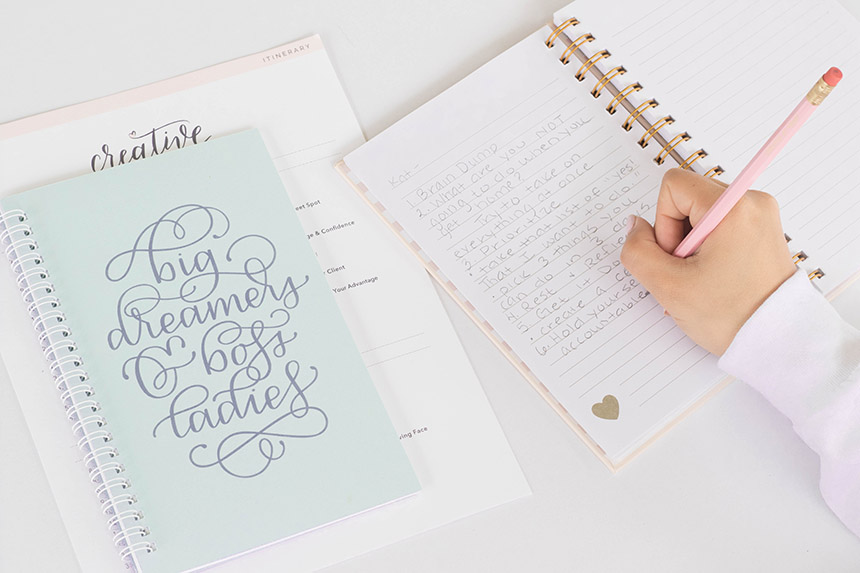 ITINERARY
creative
eet Spot
ge & Confidence
Client
Your Advantage
ving Face
big
dreamers
& boss
ladies
Kat
1. Brain Dump
2. What are you NOT
going to do when you
get home?
Try to take on
everything at once
3. Prioritize
take that list of "yes!
That I want to do."
pick 3 things you
can do in 3
4. Rest & Ref
5. Get it D
create a c
6. Hold yourself
accountable